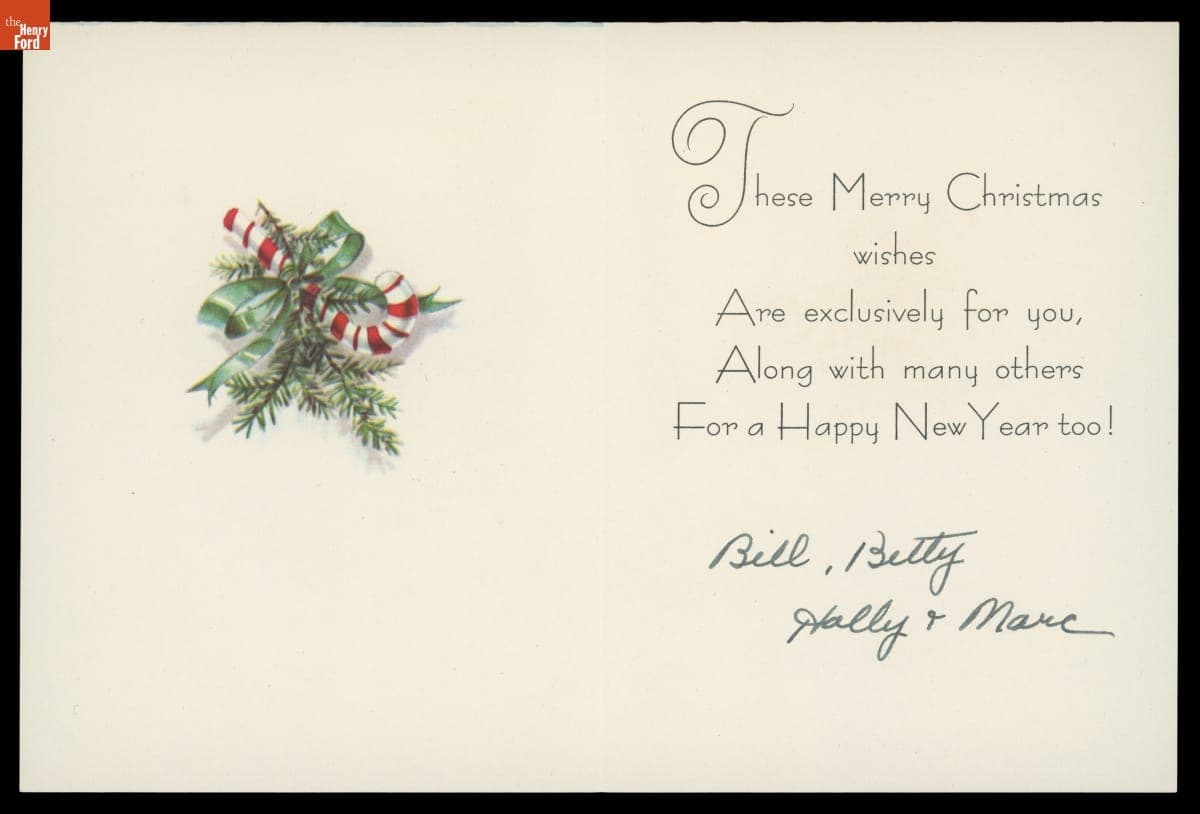 the
Henry
Ford
These Merry Christmas
wishes
Are exclusively for you,
Along with many others
For a Happy New Year too!
Bill, Betty
Holly & Marc